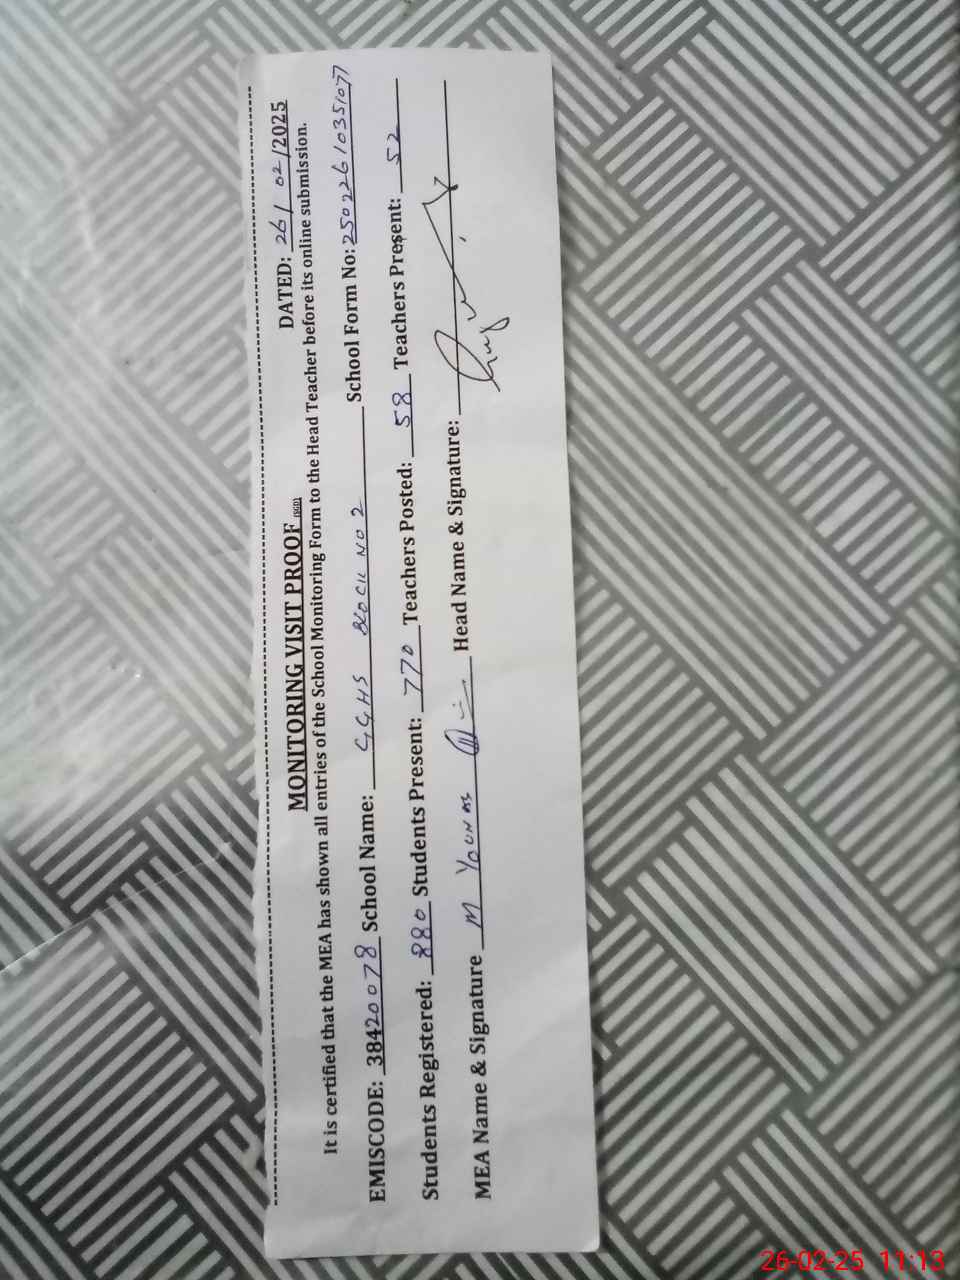 MONITORING VISIT PROOF (SGD)
DATED: 26/02/2025
It is certified that the MEA has shown all entries of the School Monitoring Form to the Head Teacher before its online submission.
EMISCODE: 38420078 School Name: GGHS BLOCK NO 2 School Form No: 25022610351077
Students Registered: 880 Students Present: 770 Teachers Posted: 58 Teachers Present: 52
MEA Name & Signature M YOUNAS Head Name & Signature:
26-02-25 11:13